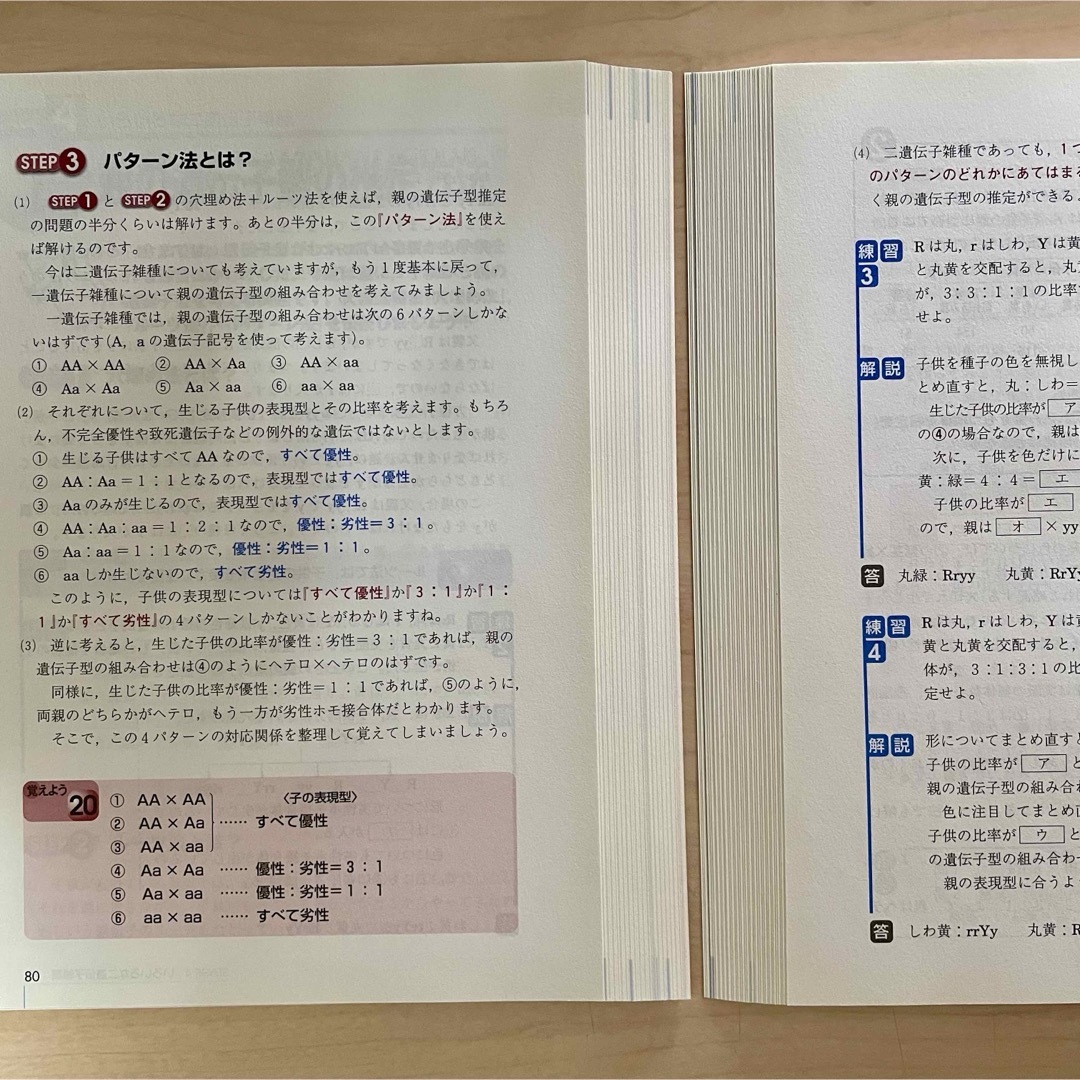 STEP 3 パターン法とは？
(1) STEP 1 と STEP 2 の穴埋め法＋ルーツ法を使えば，親の遺伝子型推定
の問題の半分くらいは解けます。あとの半分は，この『パターン法』を使え
ば解けるのです。
今は二遺伝子雑種についても考えていますが，もう1度基本に戻って，
一遺伝子雑種について親の遺伝子型の組み合わせを考えてみましょう。
一遺伝子雑種では，親の遺伝子型の組み合わせは次の6パターンしかな
いはずです(A，aの遺伝子記号を使って考えます)。
① AA × AA ② AA × Aa ③ AA × aa
④ Aa × Aa ⑤ Aa × aa ⑥ aa × aa
(2) それぞれについて，生じる子供の表現型とその比率を考えます。もちろ
ん，不完全優性や致死遺伝子などの例外的な遺伝ではないとします。
① 生じる子供はすべて AA なので，すべて優性。
② AA：Aa＝1：1となるので，表現型ではすべて優性。
③ Aa のみが生じるので，表現型ではすべて優性。
④ AA：Aa：aa＝1：2：1なので，優性：劣性＝3：1。
⑤ Aa：aa＝1：1なので，優性：劣性＝1：1。
⑥ aa しか生じないので，すべて劣性。
このように，子供の表現型については『すべて優性』か『3：1』か『1：
1』か『すべて劣性』の4パターンしかないことがわかりますね。
(3) 逆に考えると，生じた子供の比率が優性：劣性＝3：1であれば，親の
遺伝子型の組み合わせは④のようにヘテロ×ヘテロのはずです。
同様に，生じた子供の比率が優性：劣性＝1：1であれば，⑤のように，
両親のどちらかがヘテロ，もう一方が劣性ホモ接合体だとわかります。
そこで，この4パターンの対応関係を整理して覚えてしまいましょう。
覚えよう 20
〈子の表現型〉
① AA × AA
② AA × Aa …… すべて優性
③ AA × aa
④ Aa × Aa …… 優性：劣性＝3：1
⑤ Aa × aa …… 優性：劣性＝1：1
⑥ aa × aa …… すべて劣性
80
(4) 二遺伝子雑種であっても，1つ
のパターンのどれかにあてはまる
く親の遺伝子型の推定ができる
練習 3 Rは丸，rはしわ，Yは黄
と丸黄を交配すると，丸
が，3：3：1：1の比率
せよ。
解説 子供を種子の色を無視し
とめ直すと，丸：しわ＝
生じた子供の比率が ア
の④の場合なので，親は
次に，子供を色だけに
黄：緑＝4：4＝ エ
子供の比率が エ
ので，親は オ × yy
答 丸緑：Rryy 丸黄：RrY
練習 4 Rは丸，rはしわ，Yは
黄と丸黄を交配すると，
体が，3：1：3：1の比
定せよ。
解説 形についてまとめ直すと
子供の比率が ア と
親の遺伝子型の組み合
色に注目してまとめ直
子供の比率が ウ と
の遺伝子型の組み合わ
親の表現型に合うよ
答 しわ黄：rrYy 丸黄：R